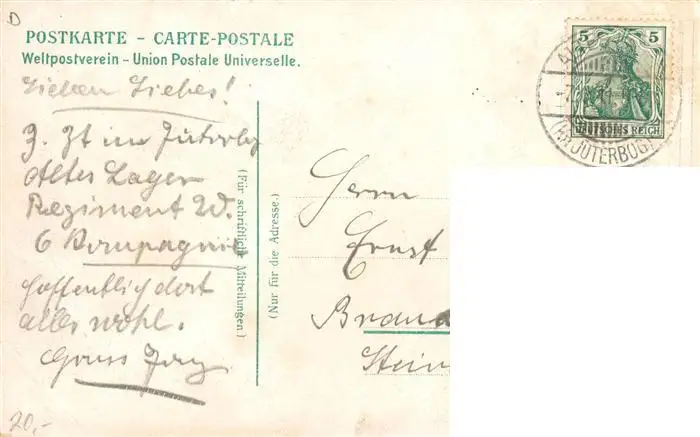 D
POSTKARTE - CARTE-POSTALE
Weltpostverein - Union Postale Universelle.
5 5
DEUTSCHES REICH
JÜTERBOG
Lieben!
Z. Zt im Jüterbog
Altes Lager
Regiment 20.
6 Kompagnie
hoffentlich dort
alles wohl.
Gruss
(Für schriftliche Mitteilungen.)
(Nur für die Adresse.)
Herrn
Ernst
Brand
Stein
20,-